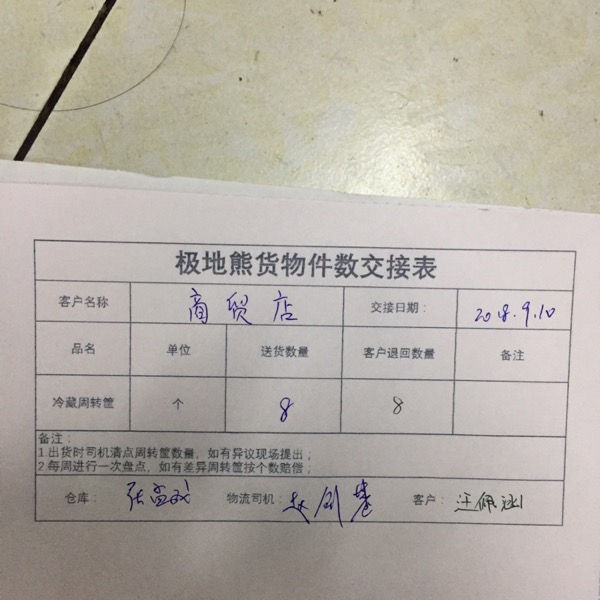 极地熊货物件数交接表
客户名称 商贸店 交接日期： 2018.9.10
品名 单位 送货数量 客户退回数量 备注
冷藏周转筐 个 8 8
备注：
1.出货时司机清点周转筐数量，如有异议现场提出；
2.每周进行一次盘点，如有差异周转筐按个数赔偿；
仓库： 物流司机： 客户： 汪佩涵